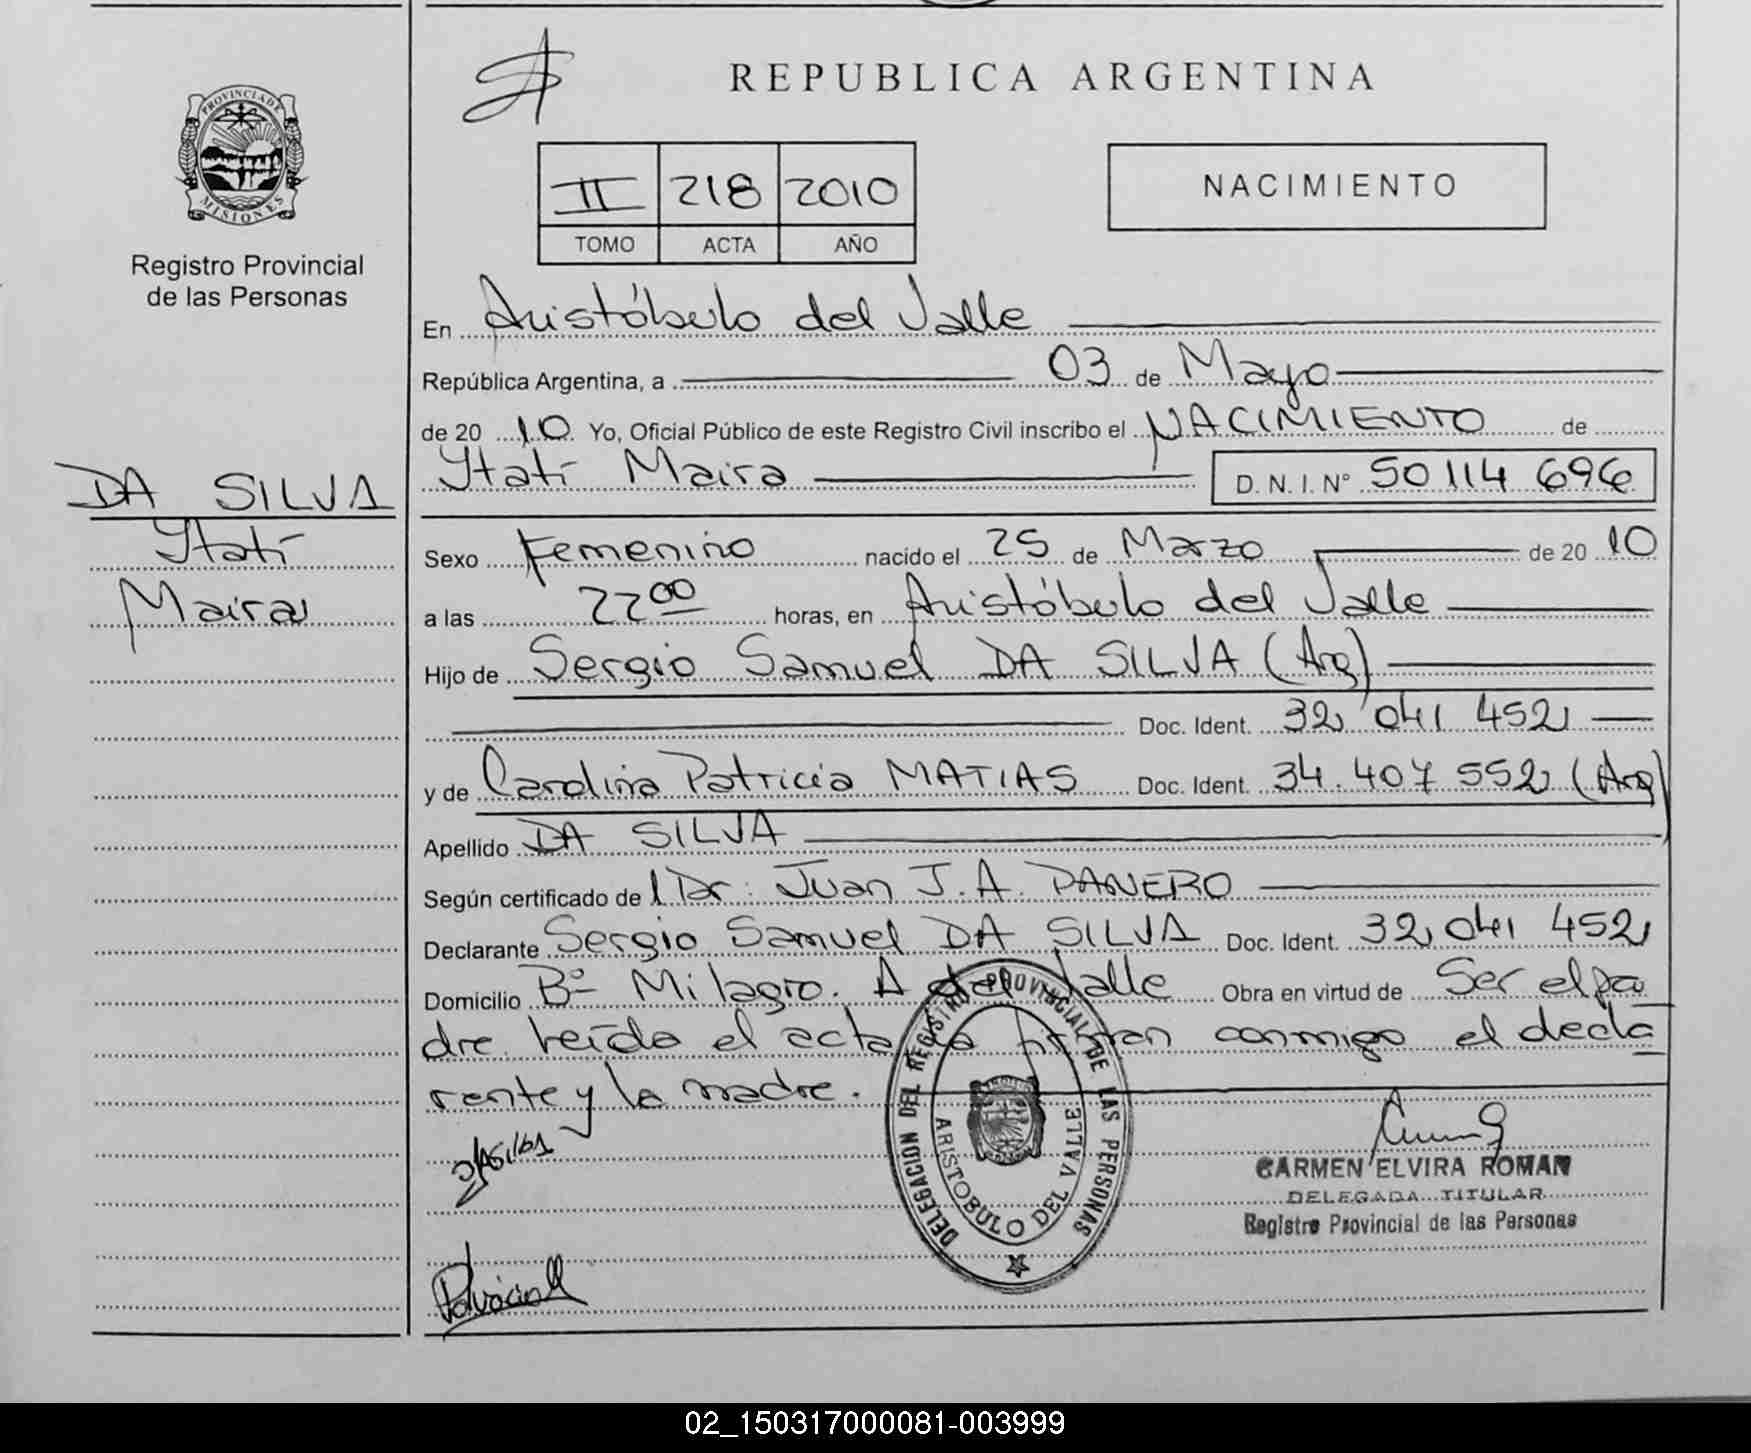 PROVINCIA DE
MISIONES
Registro Provincial
de las Personas
DA SILVA
Ytatí
Maira
REPUBLICA ARGENTINA
II 218 2010
TOMO ACTA AÑO
NACIMIENTO
En Aristóbulo del Valle
República Argentina, a 03 de Mayo
de 20 10 Yo, Oficial Público de este Registro Civil inscribo el NACIMIENTO de
Ytatí Maira D.N.I. Nº 50 114 696
Sexo Femenino nacido el 25 de Marzo de 20 10
a las 22 00 horas, en Aristóbulo del Valle
Hijo de Sergio Samuel DA SILVA (Arg)
Doc. Ident. 32 041 452
y de Carolina Patricia MATIAS Doc. Ident. 34.407 552 (Arg)
Apellido DA SILVA
Según certificado de Dr. Juan J.A. PANERO
Declarante Sergio Samuel DA SILVA Doc. Ident. 32 041 452
Domicilio Bº Milagro. A del Valle Obra en virtud de Ser el pa
dre leída el acta la firman conmigo el decla
rante y la madre.
DELEGACION DEL REGISTRO PROVINCIAL DE LAS PERSONAS
ARISTOBULO DEL VALLE
CARMEN ELVIRA ROMAN
DELEGADA TITULAR
Registro Provincial de las Personas
02_150317000081-003999